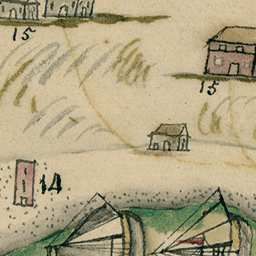 15
15
14